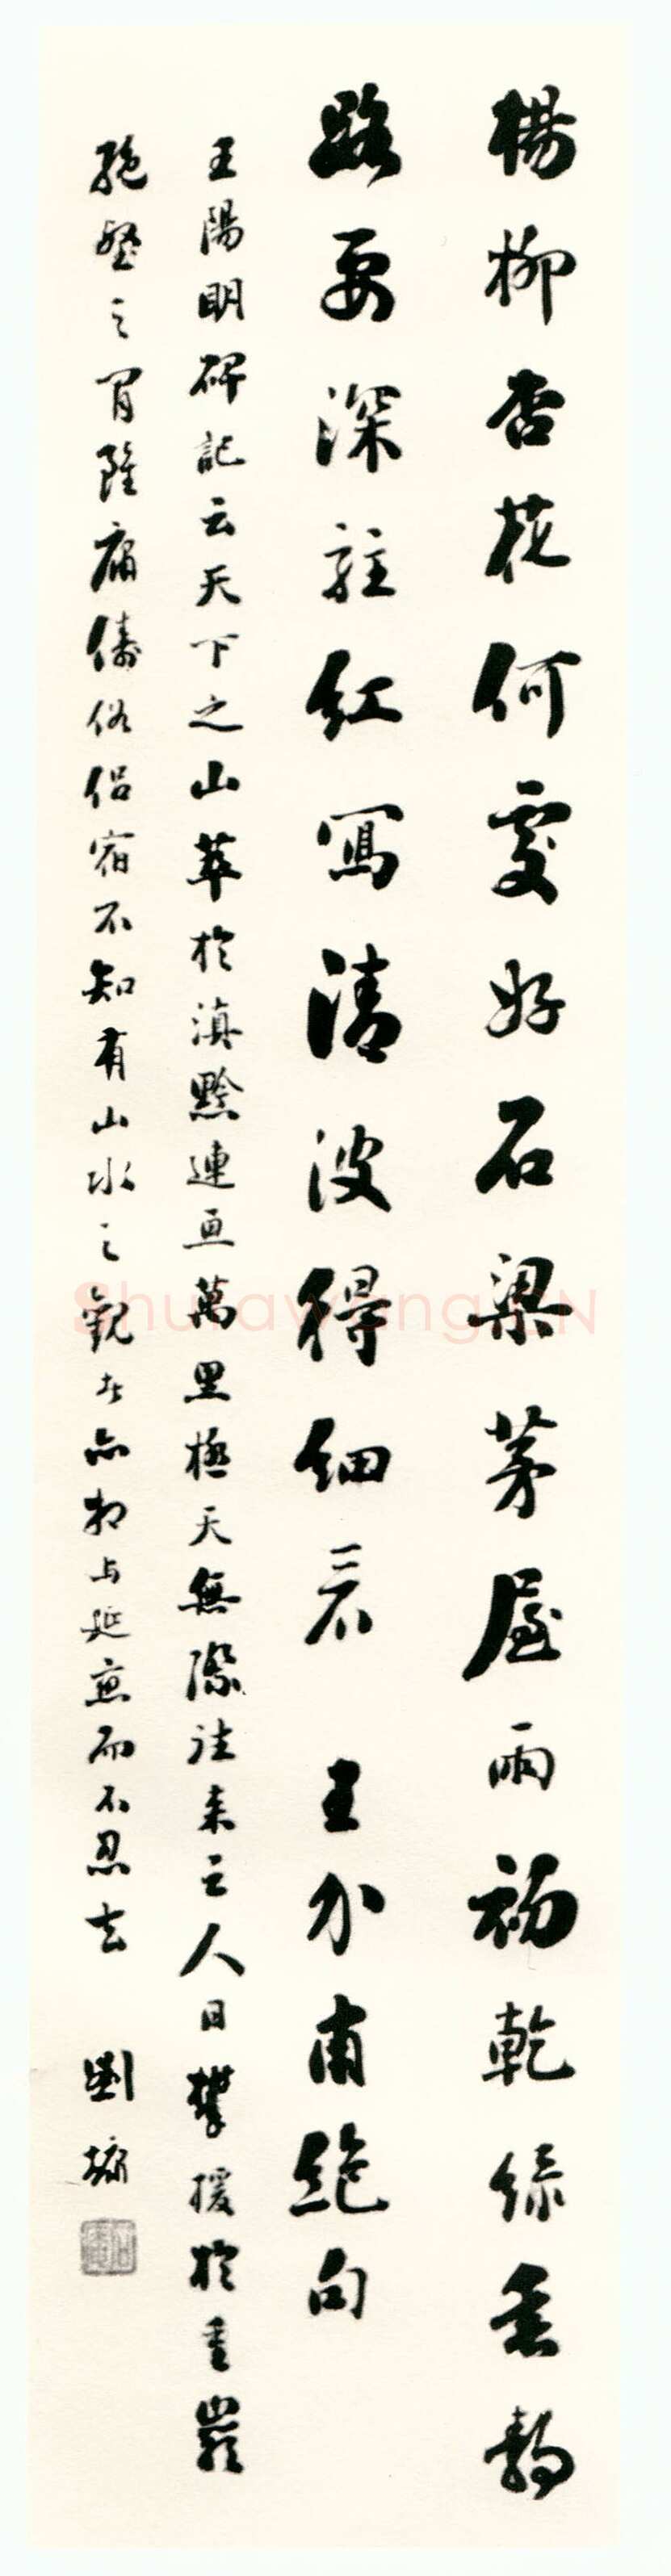 楊柳杏花何處好石梁茅屋雨初乾綠垂靜
路要深駐紅寫清波得細看 王介甫絕句
王陽明碑記云天下之山萃於滇黔連亘萬里極天無際往來之人日攀援於重巖
絕壑之間雖庸儔俗侶宿不知有山水之觀者亦相與延戀而不忍去 劉墉
Shufawang.CN